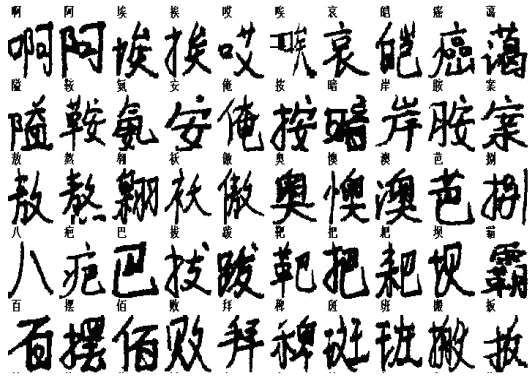 啊 阿 埃 挨 哎 唉 哀 皑 癌 蔼
啊 阿 埃 挨 哎 唉 哀 皑 癌 蔼
隘 鞍 氨 安 俺 按 暗 岸 胺 案
隘 鞍 氨 安 俺 按 暗 岸 胺 案
敖 熬 翱 袄 傲 奥 懊 澳 芭 捌
敖 熬 翱 袄 傲 奥 懊 澳 芭 捌
八 疤 巴 拔 跋 靶 把 耙 坝 霸
八 疤 巴 拔 跋 靶 把 耙 坝 霸
百 摆 佰 败 拜 稗 斑 班 搬 扳
百 摆 佰 败 拜 稗 斑 班 搬 扳